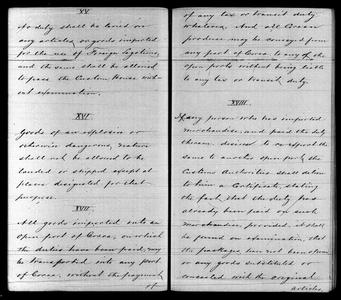 XV
No duty shall be levied on
any articles or goods imported
for the use of Foreign Legations,
and the same shall be allowed
to pass the Custom House with-
out examination.
XVI
Goods of an explosive or
otherwise dangerous, nature
shall not be allowed to be
landed or shipped except at
places designated for that
purpose.
XVII
All goods imported into an
open port of Corea, on which
the duties have been paid, may
be transported into any port
of Corea, without the payment
of
of any tax or transit duty
whatever, and all Corean
produce may be conveyed from
any port of Corea to any of the
open ports without being liable
to any tax or transit duty.
XVIII.
If any person who has imported
merchandise, and paid the duty
thereon, desires to re-export the
same to another open port, the
Customs Authorities shall deliver
to him a Certificate, stating
the fact, that the duty has
already been paid on such
merchandise, provided, it shall
be found on examination, that
the packages have not been broken
or any goods substituted or
concealed with the original
articles.